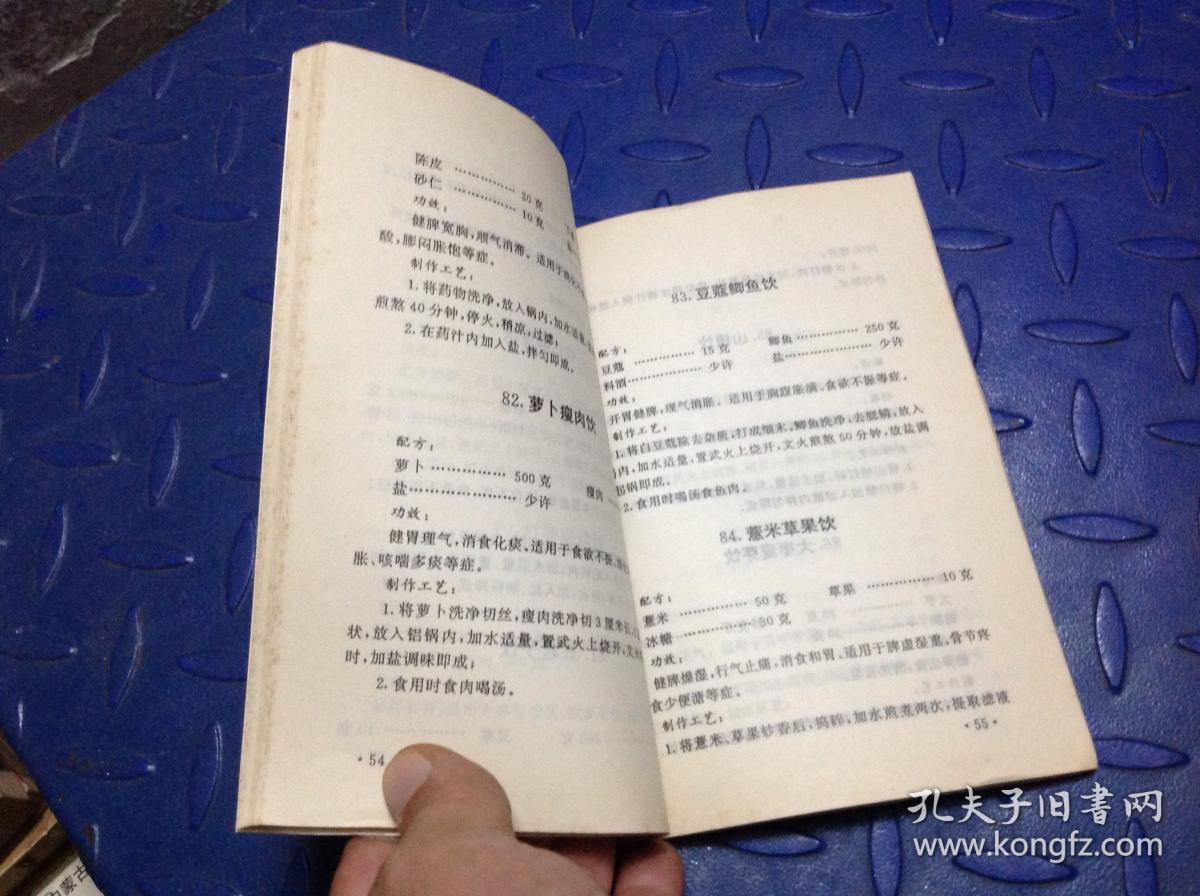 陈皮 …………… 20克
砂仁 …………… 10克
功效：
健脾宽胸，顺气消滞、适用于消化
酸，膨闷胀饱等症。
制作工艺：
1.将药物洗净，放入锅内，加水适量，
煎熬40分钟，停火，稍凉，过滤；
2.在药汁内加入盐，拌匀即成。
82.萝卜瘦肉饮
配方：
萝卜 …………… 500克 瘦肉
盐 …………… 少许
功效：
健胃理气，消食化痰。适用于食欲不振、
胀、咳喘多痰等症。
制作工艺：
1.将萝卜洗净切丝，瘦肉洗净切3厘米
状，放入铝锅内，加水适量，置武火上烧开，文火
时，加盐调味即成；
2.食用时食肉喝汤。
·54
83.豆蔻鲫鱼饮
配方：
豆蔻 …………… 15克 鲫鱼 …………… 250克
料酒 …………… 少许 盐 …………… 少许
功效：
开胃健脾，理气消胀、适用于胸腹胀满、食欲不振等症。
制作工艺：
1.将白豆蔻除去杂质，打成细末，鲫鱼洗净，去腮鳞，放入
内，加水适量，置武火上烧开，文火煎熬50分钟，放盐调
起锅即成。
2.食用时喝汤食鱼肉。
84.薏米草果饮
配方：
薏米 …………… 50克 草果 …………… 10克
冰糖 …………… 30克
功效：
健脾燥湿，行气止痛，消食和胃，适用于脾虚湿重、骨节疼
食少便溏等症。
制作工艺：
1.将薏米、草果炒香后，捣碎，加水煎煮两次，提取滤液
·55·
内蒙古
孔夫子旧书网
www.kongfz.com